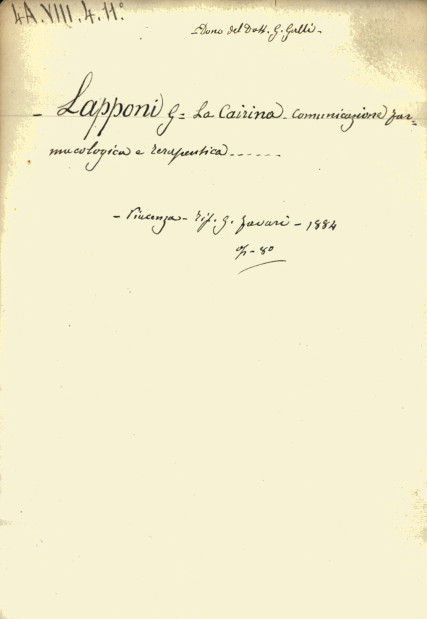 4A.VIII.4.11°
Dono del Dott. G. Galli -
- Lapponi G = La Cairina - comunicazione far=
macologica e terapeutica - - - - - -
- Piacenza - Tip. G. Favari - 1884
op - 8°